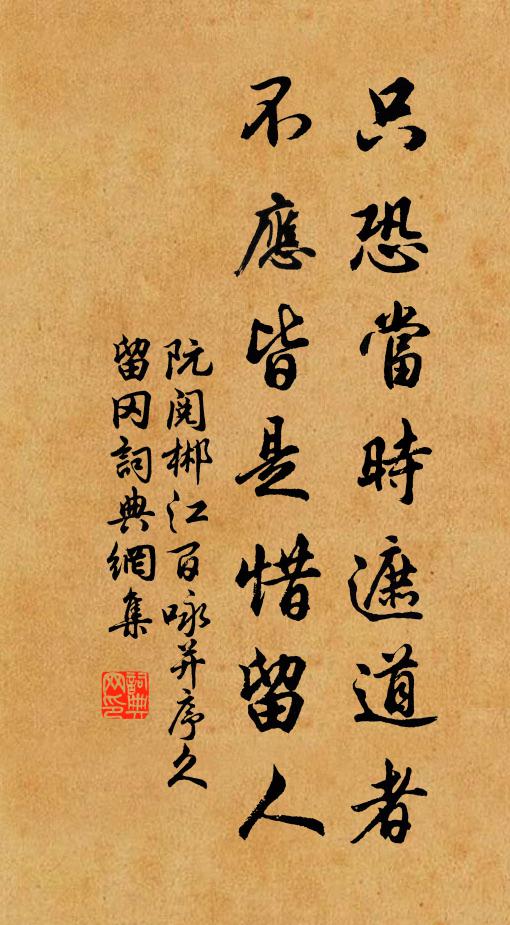 只恐當時遮道者
不應皆是惜留人
阮閱郴江百咏并序久
留冈詞典網集
詞典网印